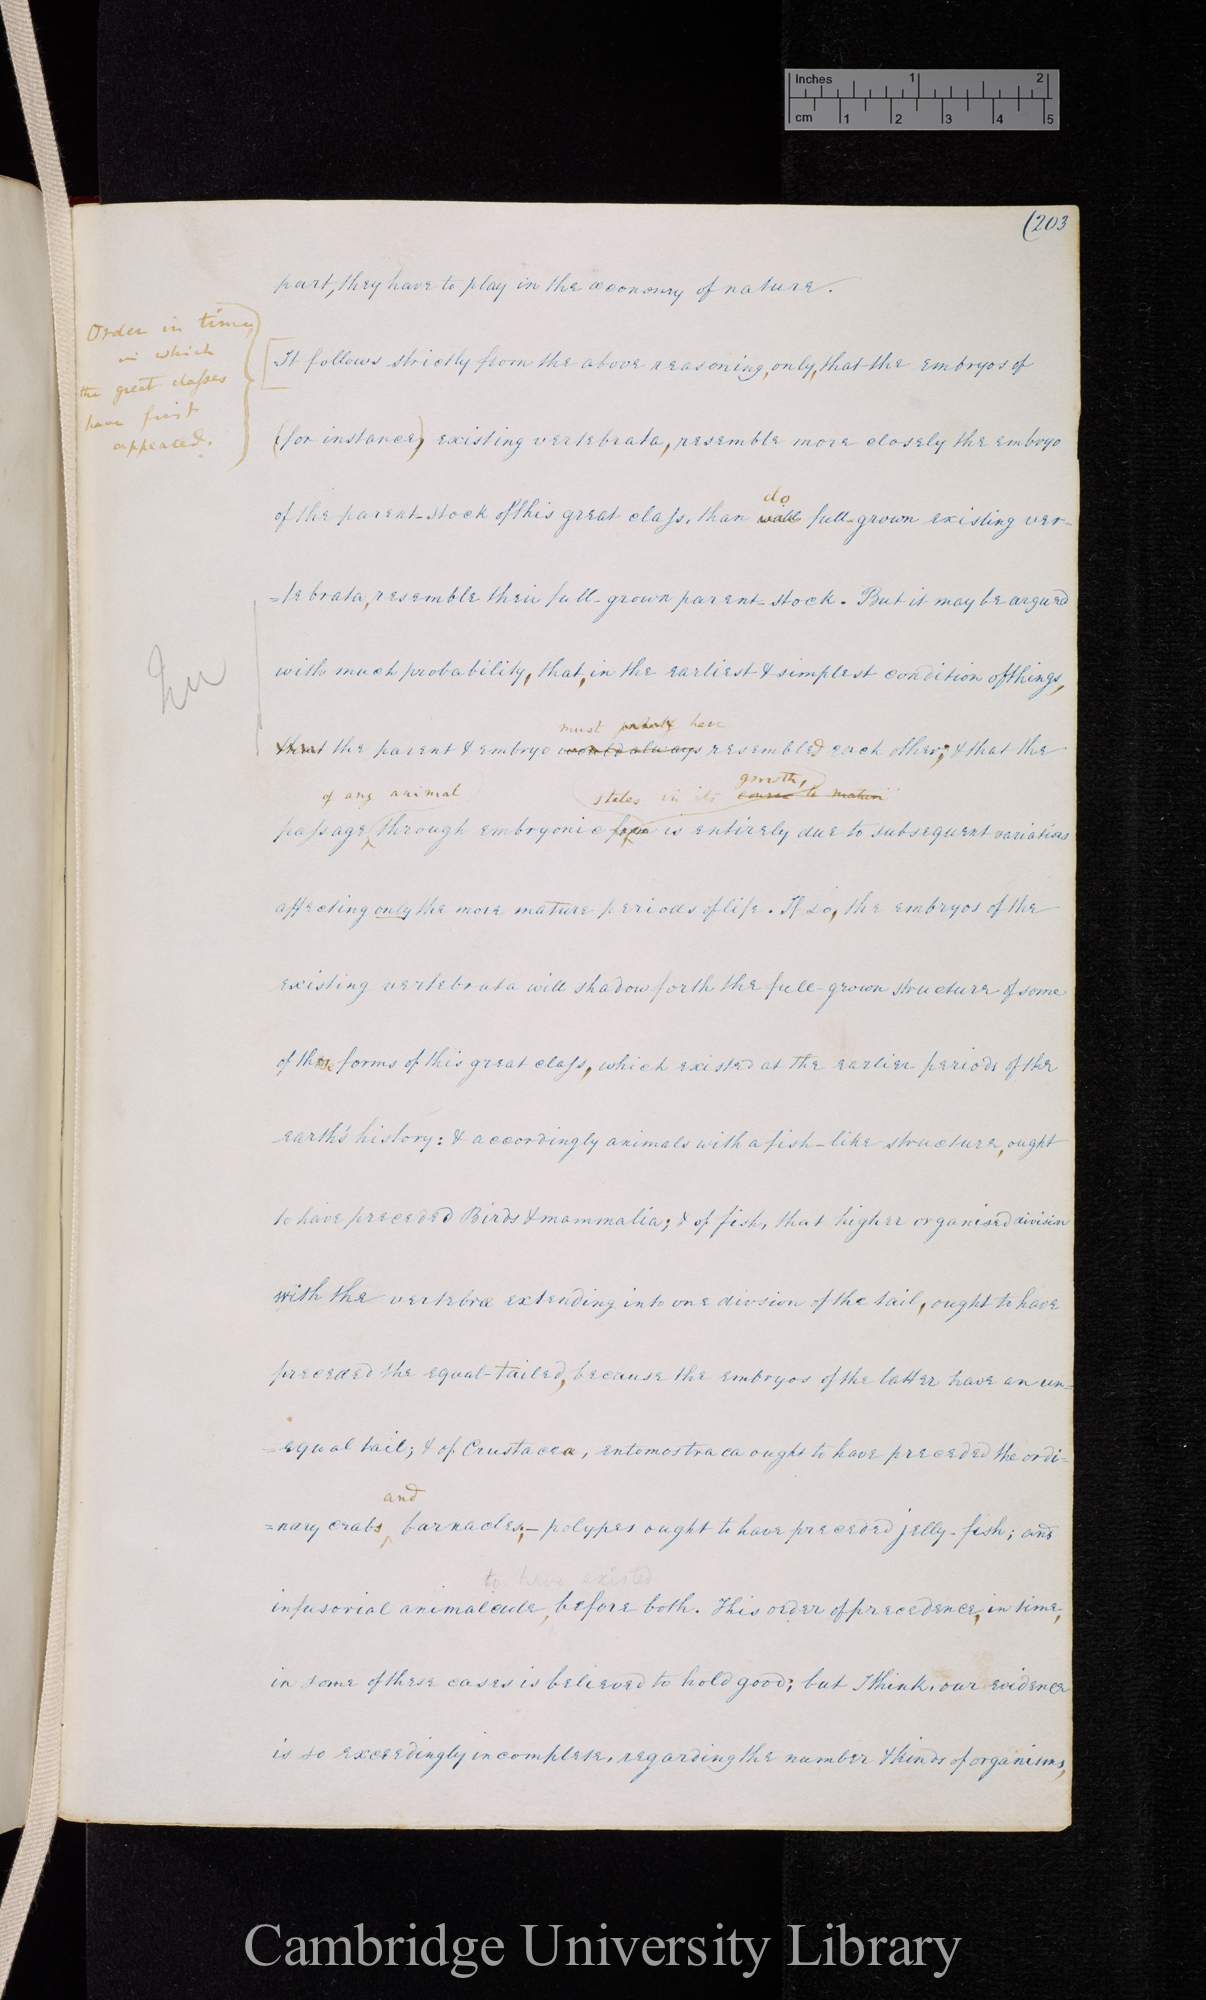 Inches 1 2
cm 1 2 3 4 5
(203
part, they have to play in the œconomy of nature.
Order in time,
in which
the great classes
have first
appeared.
[It follows strictly from the above reasoning, only, that the embryos of
(for instance) existing vertebrata, resemble more closely the embryo
do
of the parent-stock of this great class, than will full-grown existing ver-
=tebrata, resemble their full-grown parent-stock. But it may be argued
with much probability, that, in the earliest & simplest condition of things,
must have
that the parent & embryo would always resembled each other; & that the
of any animal
states in its growth, course to matur
passage, through embryonic form is entirely due to subsequent variations
affecting only the more mature periods of life. If so, the embryos of the
existing vertebrata will shadow forth the full-grown structure of some
of those forms of this great class, which existed at the earlier periods of the
earth's history: & accordingly animals with a fish-like structure, ought
to have preceded Birds & mammalia; & of fish, that higher organised division
with the vertebræ extending into one division of the tail, ought to have
preceded the equal-tailed, because the embryos of the latter have an un=
=equal tail; & of Crustacea, entomostraca ought to have preceded the ordi-
and
=nary crabs barnacles,- polypes ought to have preceded jelly-fish; and
to have existed
infusorial animalcule, before both. This order of precedence, in time,
in some of these cases is believed to hold good; but I think, our evidence
is so exceedingly incomplete, regarding the number & kinds of organisms,
Cambridge University Library